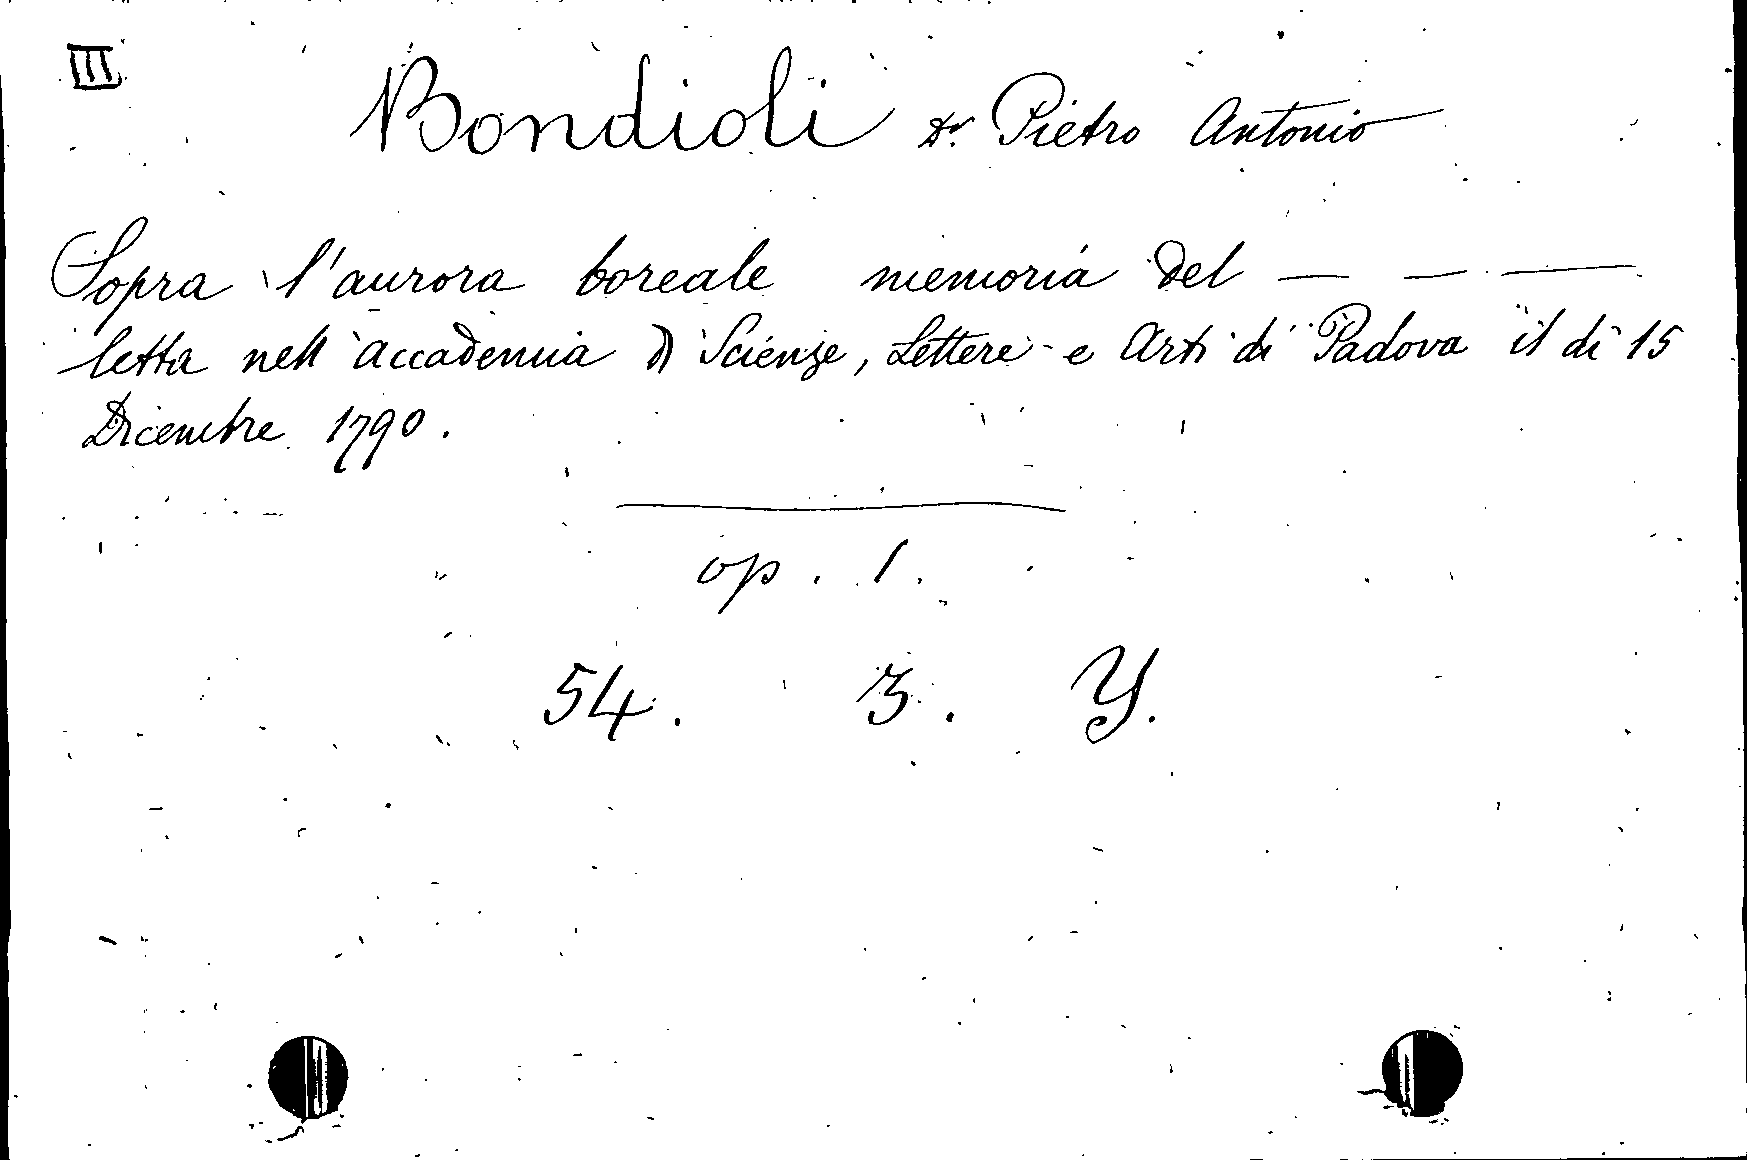 III
Bondioli Dr. Pietro Antonio
Sopra l'aurora boreale memoria del — — —
letta nell'accademia di Scienze, Lettere e Arti di Padova il dì 15
Dicembre 1790.
op. 1.
54. 3. Y.